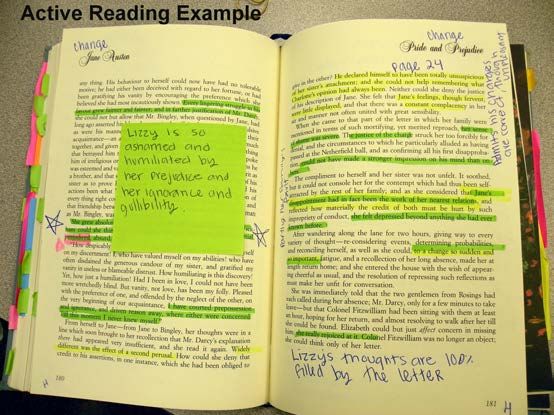 Active Reading Example
change
Jane Austen
any thing. His behaviour to herself could now have had no tolerable
motive; he had either been deceived with regard to her fortune, or had
been gratifying his vanity by encouraging the preference which she
believed she had most incautiously shown. Every lingering struggle in his
favour grew fainter and fainter; and in farther justification of Mr. Darcy,
she could not but allow that Mr. Bingley, when questioned by Jane, had
long ago asserted his
as were his manners
acquaintance—an
together, and given
that betrayed him
him of irreligious or
was esteemed and
a brother, and that
sister as to prove him
actions been what
every thing right
that friendship between
as Mr. Bingley, was
She grew absolutely
Lizzy is so
ashamed and
humiliated by
her prejudice and
her ignorance and
gullibility
"How despicably
on my discernment! I, who have valued myself on my abilities! who have
often disdained the generous candour of my sister, and gratified my
vanity in useless or blameable distrust. How humiliating is this discovery!
Yet, how just a humiliation! Had I been in love, I could not have been
more wretchedly blind. But vanity, not love, has been my folly. Pleased
with the preference of one, and offended by the neglect of the other, on
the very beginning of our acquaintance, I have courted prepossession
and ignorance, and driven reason away, where either were concerned.
Till this moment I never knew myself."
From herself to Jane—from Jane to Bingley, her thoughts were in a
line which soon brought to her recollection that Mr. Darcy's explanation
there had appeared very insufficient, and she read it again. Widely
different was the effect of a second perusal. How could she deny that
credit to his assertions, in one instance, which she had been obliged to
180
change
Pride and Prejudice
page 24
give in the other? He declared himself to have been totally unsuspicious
of her sister's attachment; and she could not help remembering what
Charlotte's opinion had always been. Neither could she deny the justice
of his description of Jane. She felt that Jane's feelings, though fervent,
were little displayed, and that there was a constant complacency in her
air and manner not often united with great sensibility.
When she came to that part of the letter in which her family were
mentioned in terms of such mortifying, yet merited reproach, her sense
of shame was severe. The justice of the charge struck her too forcibly for
denial, and the circumstances to which he particularly alluded as having
passed at the Netherfield ball, and as confirming all his first disapprobation,
could not have made a stronger impression on his mind than on
hers.
The compliment to herself and her sister was not unfelt. It soothed,
but it could not console her for the contempt which had thus been self-
attracted by the rest of her family; and as she considered that Jane's
disappointment had in fact been the work of her nearest relations, and
reflected how materially the credit of both must be hurt by such
impropriety of conduct, she felt depressed beyond anything she had ever
known before.
After wandering along the lane for two hours, giving way to every
variety of thought—re-considering events, determining probabilities,
and reconciling herself, as well as she could, to a change so sudden and
so important, fatigue, and a recollection of her long absence, made her at
length return home; and she entered the house with the wish of appearing
cheerful as usual, and the resolution of repressing such reflections as
must make her unfit for conversation.
She was immediately told that the two gentlemen from Rosings had
each called during her absence; Mr. Darcy, only for a few minutes to take
leave—but that Colonel Fitzwilliam had been sitting with them at least
an hour, hoping for her return, and almost resolving to walk after her till
she could be found. Elizabeth could but just affect concern in missing
him; she really rejoiced at it. Colonel Fitzwilliam was no longer an object;
she could think only of her letter.
Lizzys thoughts are 100%
filled by the letter
181